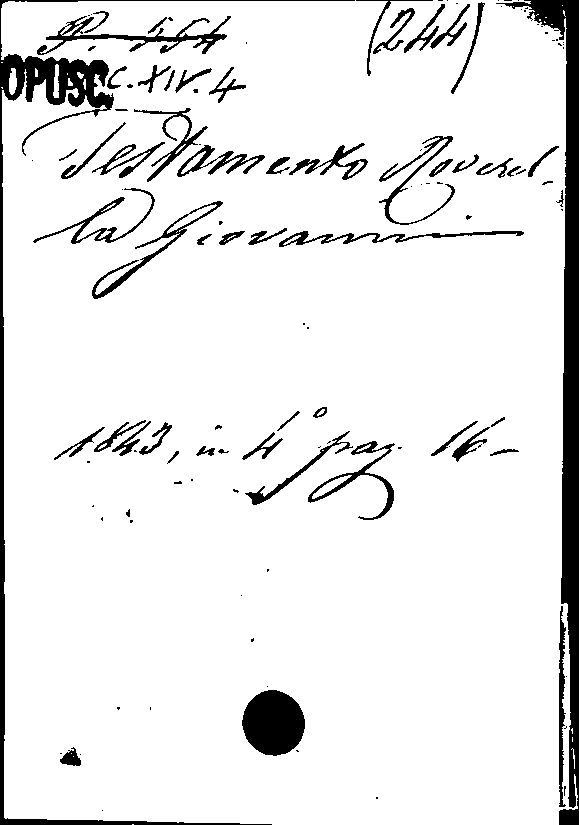 P. 554 (244)
OPUSC. C. XIV. 4
Testamento Roverel-
la Giovanni
1843, in 4° pag. 16-